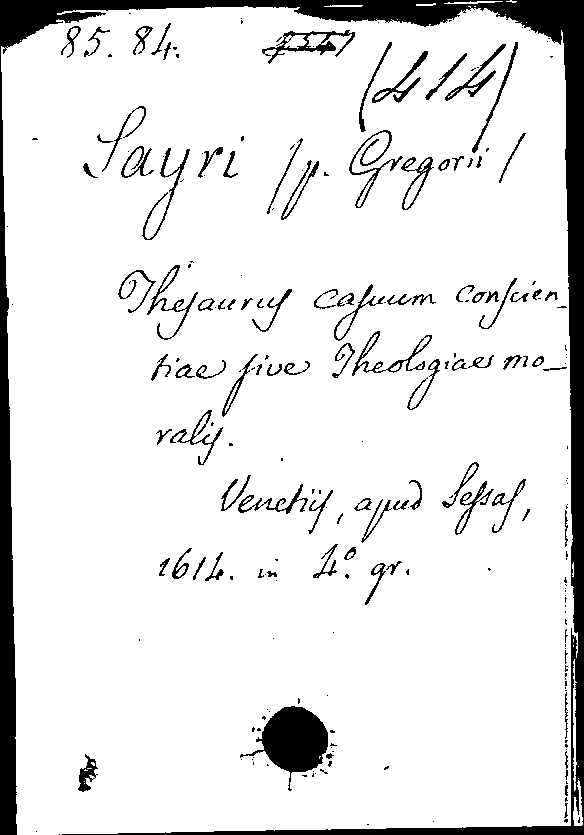 85. 84.
(414)
Sayri /p. Gregorii/
Thesaurus casuum conscien_
tiae sive Theologiae mo_
ralis.
Venetiis, apud Sessas,
1614. in 4º. gr.